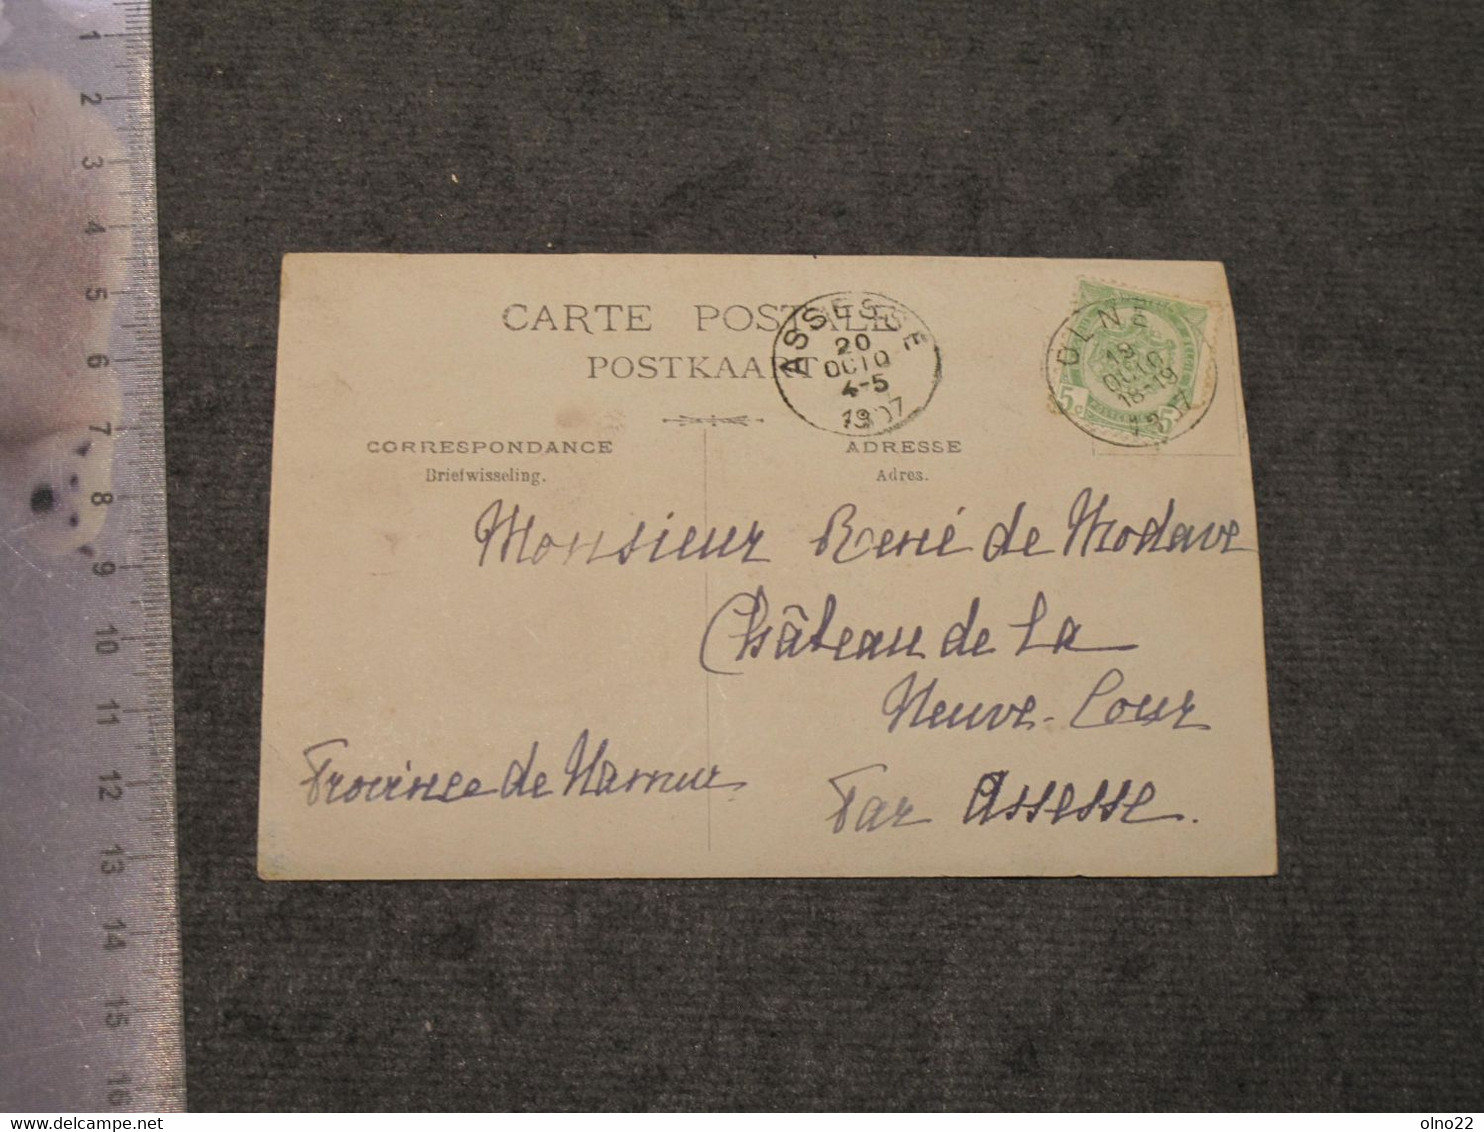 CARTE POSTALE
POSTKAART
ASSESSE
20
OCTO
4-5
1907
OLNE
19
OCTO
18-19
1907
5c
5c
CORRESPONDANCE
Briefwisseling.
ADRESSE
Adres.
Monsieur René de Modave
Château de La
Neuve-Cour
Par Assesse.
Province de Namur
1
2
3
4
5
6
7
8
9
10
11
12
13
14
15
16
www.delcampe.net
olno22